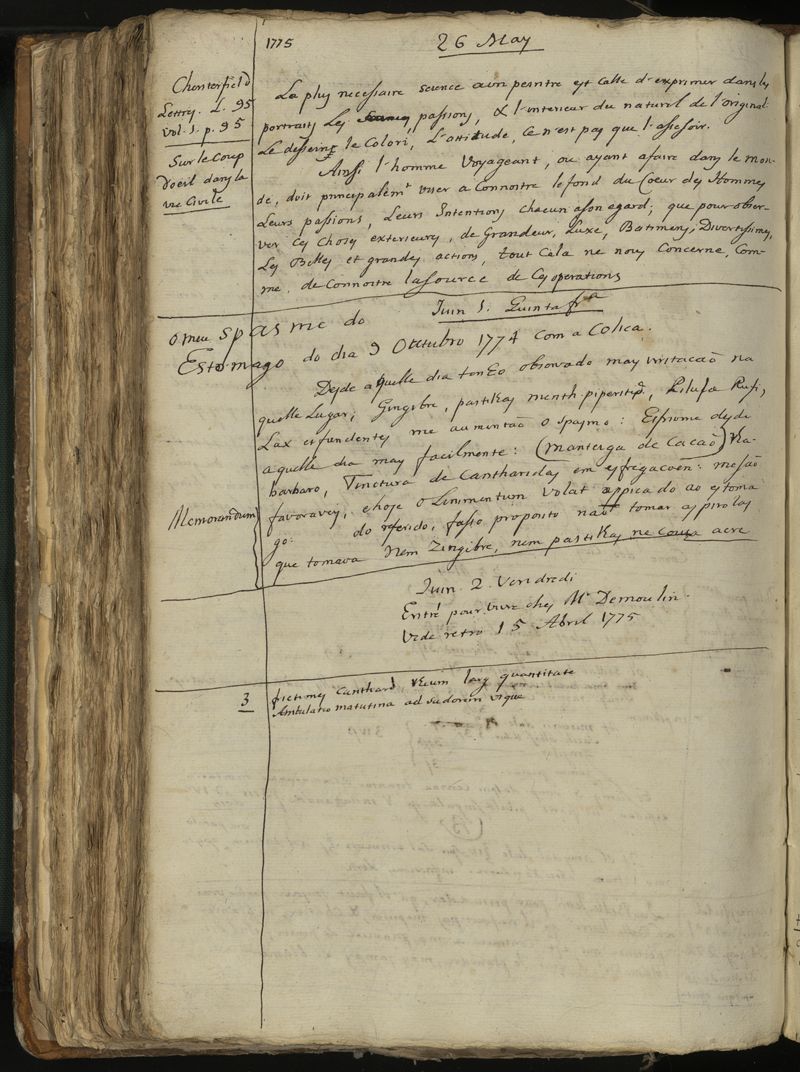 1775
26 May
Chesterfield
Lettres. L. 95
vol. 1. p. 95
Sur le Coup
d'oeil dans la
vie Civile
La plus necessaire science a un peintre est Celle d'exprimer dans les
portraits Les passions, & l'interieur du naturel de l'original
Le desseing le Colori, L'attitude, Ce n'est pas que l'assesoir.
Ainsi l'homme Voyageant, ou ayant afaire dans le mon-
de, doit principalemt viser a Connoitre le fond du Coeur des Hommes
Leurs passions, Leurs Intentions chacun a son egard; que pour obser-
ver Ces choses exterieures, de Grandeur, Luxe, Batimens, Divertissimens,
Les Belles et grandes actions, tout Cela ne nous Concerne, Com-
me de Connoitre la Source de Ces operations
Juin 1. Quinta fra
O meu spasme do
Estomago do dia 9 Octubro 1774 Com a Colica.
Desde aquelle dia tenho observado may irritacaõ na
quelle Lugar; Gingibre, pastilhas menth. piperitid, Pilula Rufi,
Lax et fundentes me aumentaõ o spasmo: Esprome desde
aquelle dia may facilmente: (manteiga de Cacaõ) Rha-
barbaro, Tinctura de Cantharidas em esfregacoen: mesaõ
favoraveis, e hoje o Linimentum Volat appicado ao estoma
go: do referido, fasso proposito naõ tomar as pirolas
que tomava Nem Zingibre, nem pastilhas ne Cousa acre
Memorandum
Juin. 2. Vendredi
Entré pour vivre ches Mr Demoulin.
Vide retro 15 Abril 1775
3
frictiones Canthard Vecum larg quantitate
Ambulatio matutina ad sudorem usque